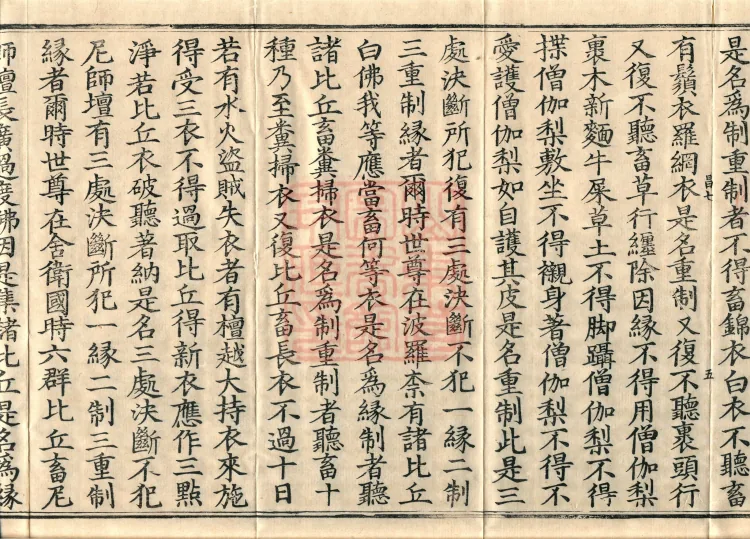 是名為制重制者不得畜錦衣白衣不聽畜
有鬚衣羅網衣是名重制又復不聽裹頭行
昌七
五
又復不聽畜草行纏除因緣不得用僧伽梨
裹木新麵牛屎草土不得脚躡僧伽梨不得
揲僧伽梨敷坐不得襯身著僧伽梨不得不
愛護僧伽梨如自護其皮是名重制此是三
處決斷所犯復有三處決斷不犯一緣二制
三重制緣者爾時世尊在波羅柰有諸比丘
白佛我等應當畜何等衣是名為緣制者聽
諸比丘畜糞掃衣是名為制重制者聽畜十
種乃至糞掃衣又復比丘畜長衣不過十日
若有水火盜賊失衣者有檀越大持衣來施
得受三衣不得過取比丘得新衣應作三點
淨若比丘衣破聽著納是名三處決斷不犯
尼師壇有三處決斷所犯一緣二制三重制
緣者爾時世尊在舍衛國時六群比丘畜尼
師壇長廣過度佛因是集諸比丘是名為緣